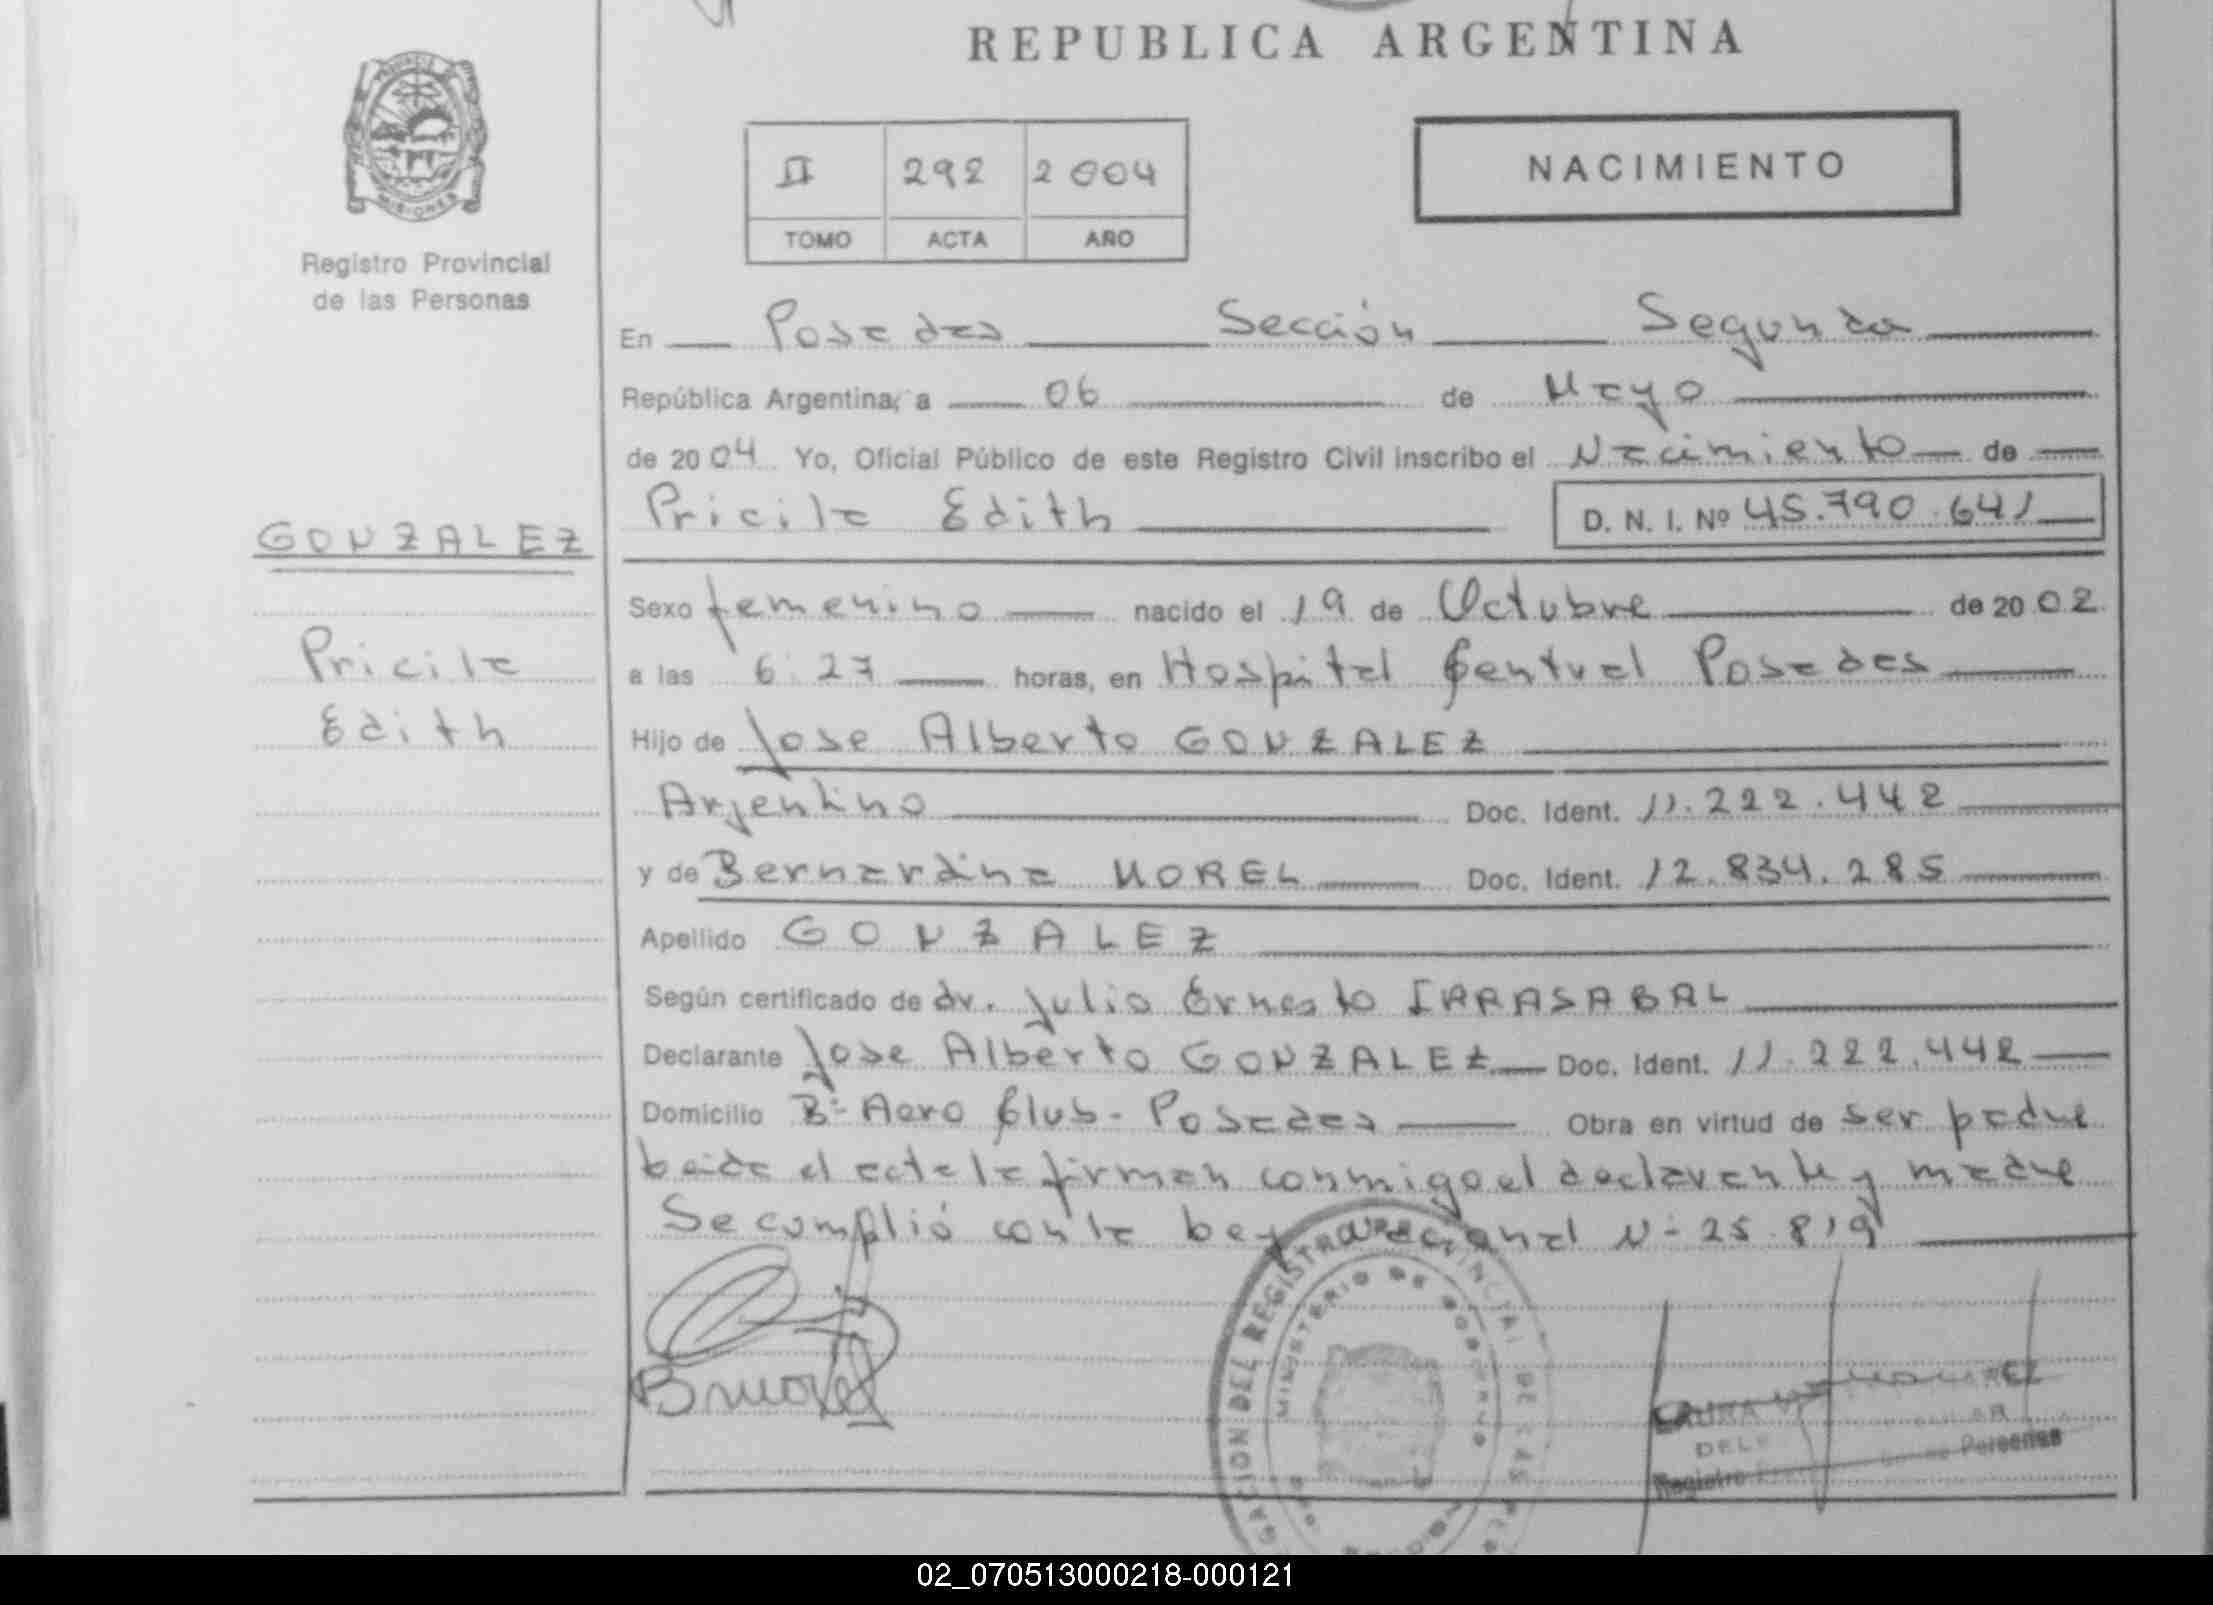 REPUBLICA ARGENTINA
II 292 2004
TOMO ACTA AÑO
NACIMIENTO
MISIONES
Registro Provincial
de las Personas
GONZALEZ
Pricila
Edith
En Posadas Sección Segunda
República Argentina, a 06 de Mayo
de 2004 Yo, Oficial Público de este Registro Civil inscribo el Nacimiento de
Pricila Edith D. N. I. Nº 45.790.641
Sexo femenino nacido el 19 de Octubre de 2002
a las 6:27 horas, en Hospital Central Posadas
Hijo de Jose Alberto GONZALEZ
Argentino Doc. Ident. 11.222.442
y de Bernardina MOREL Doc. Ident. 12.834.285
Apellido GONZALEZ
Según certificado de dr. Julio Ernesto IRRASABAL
Declarante Jose Alberto GONZALEZ Doc. Ident. 11.222.442
Domicilio Bº Aero Club - Posadas Obra en virtud de ser padre
Leida el acta la firman conmigo el declarante y madre
Se cumplió con la Ley Nacional Nº 25.819
BMorel
MINISTERIO DE GOBIERNO
LAURA
Registro Personas
02_070513000218-000121